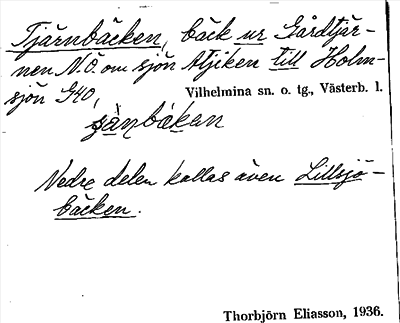 Tjärnbäcken, bäck ur Gårdtjär-
nen N.Ö. om sjön Atjiken till Holm-
sjön G40,
Vilhelmina sn. o. tg., Västerb. l.
Nedre delen kallas även Lillsjö-
bäcken.
Thorbjörn Eliasson, 1936.